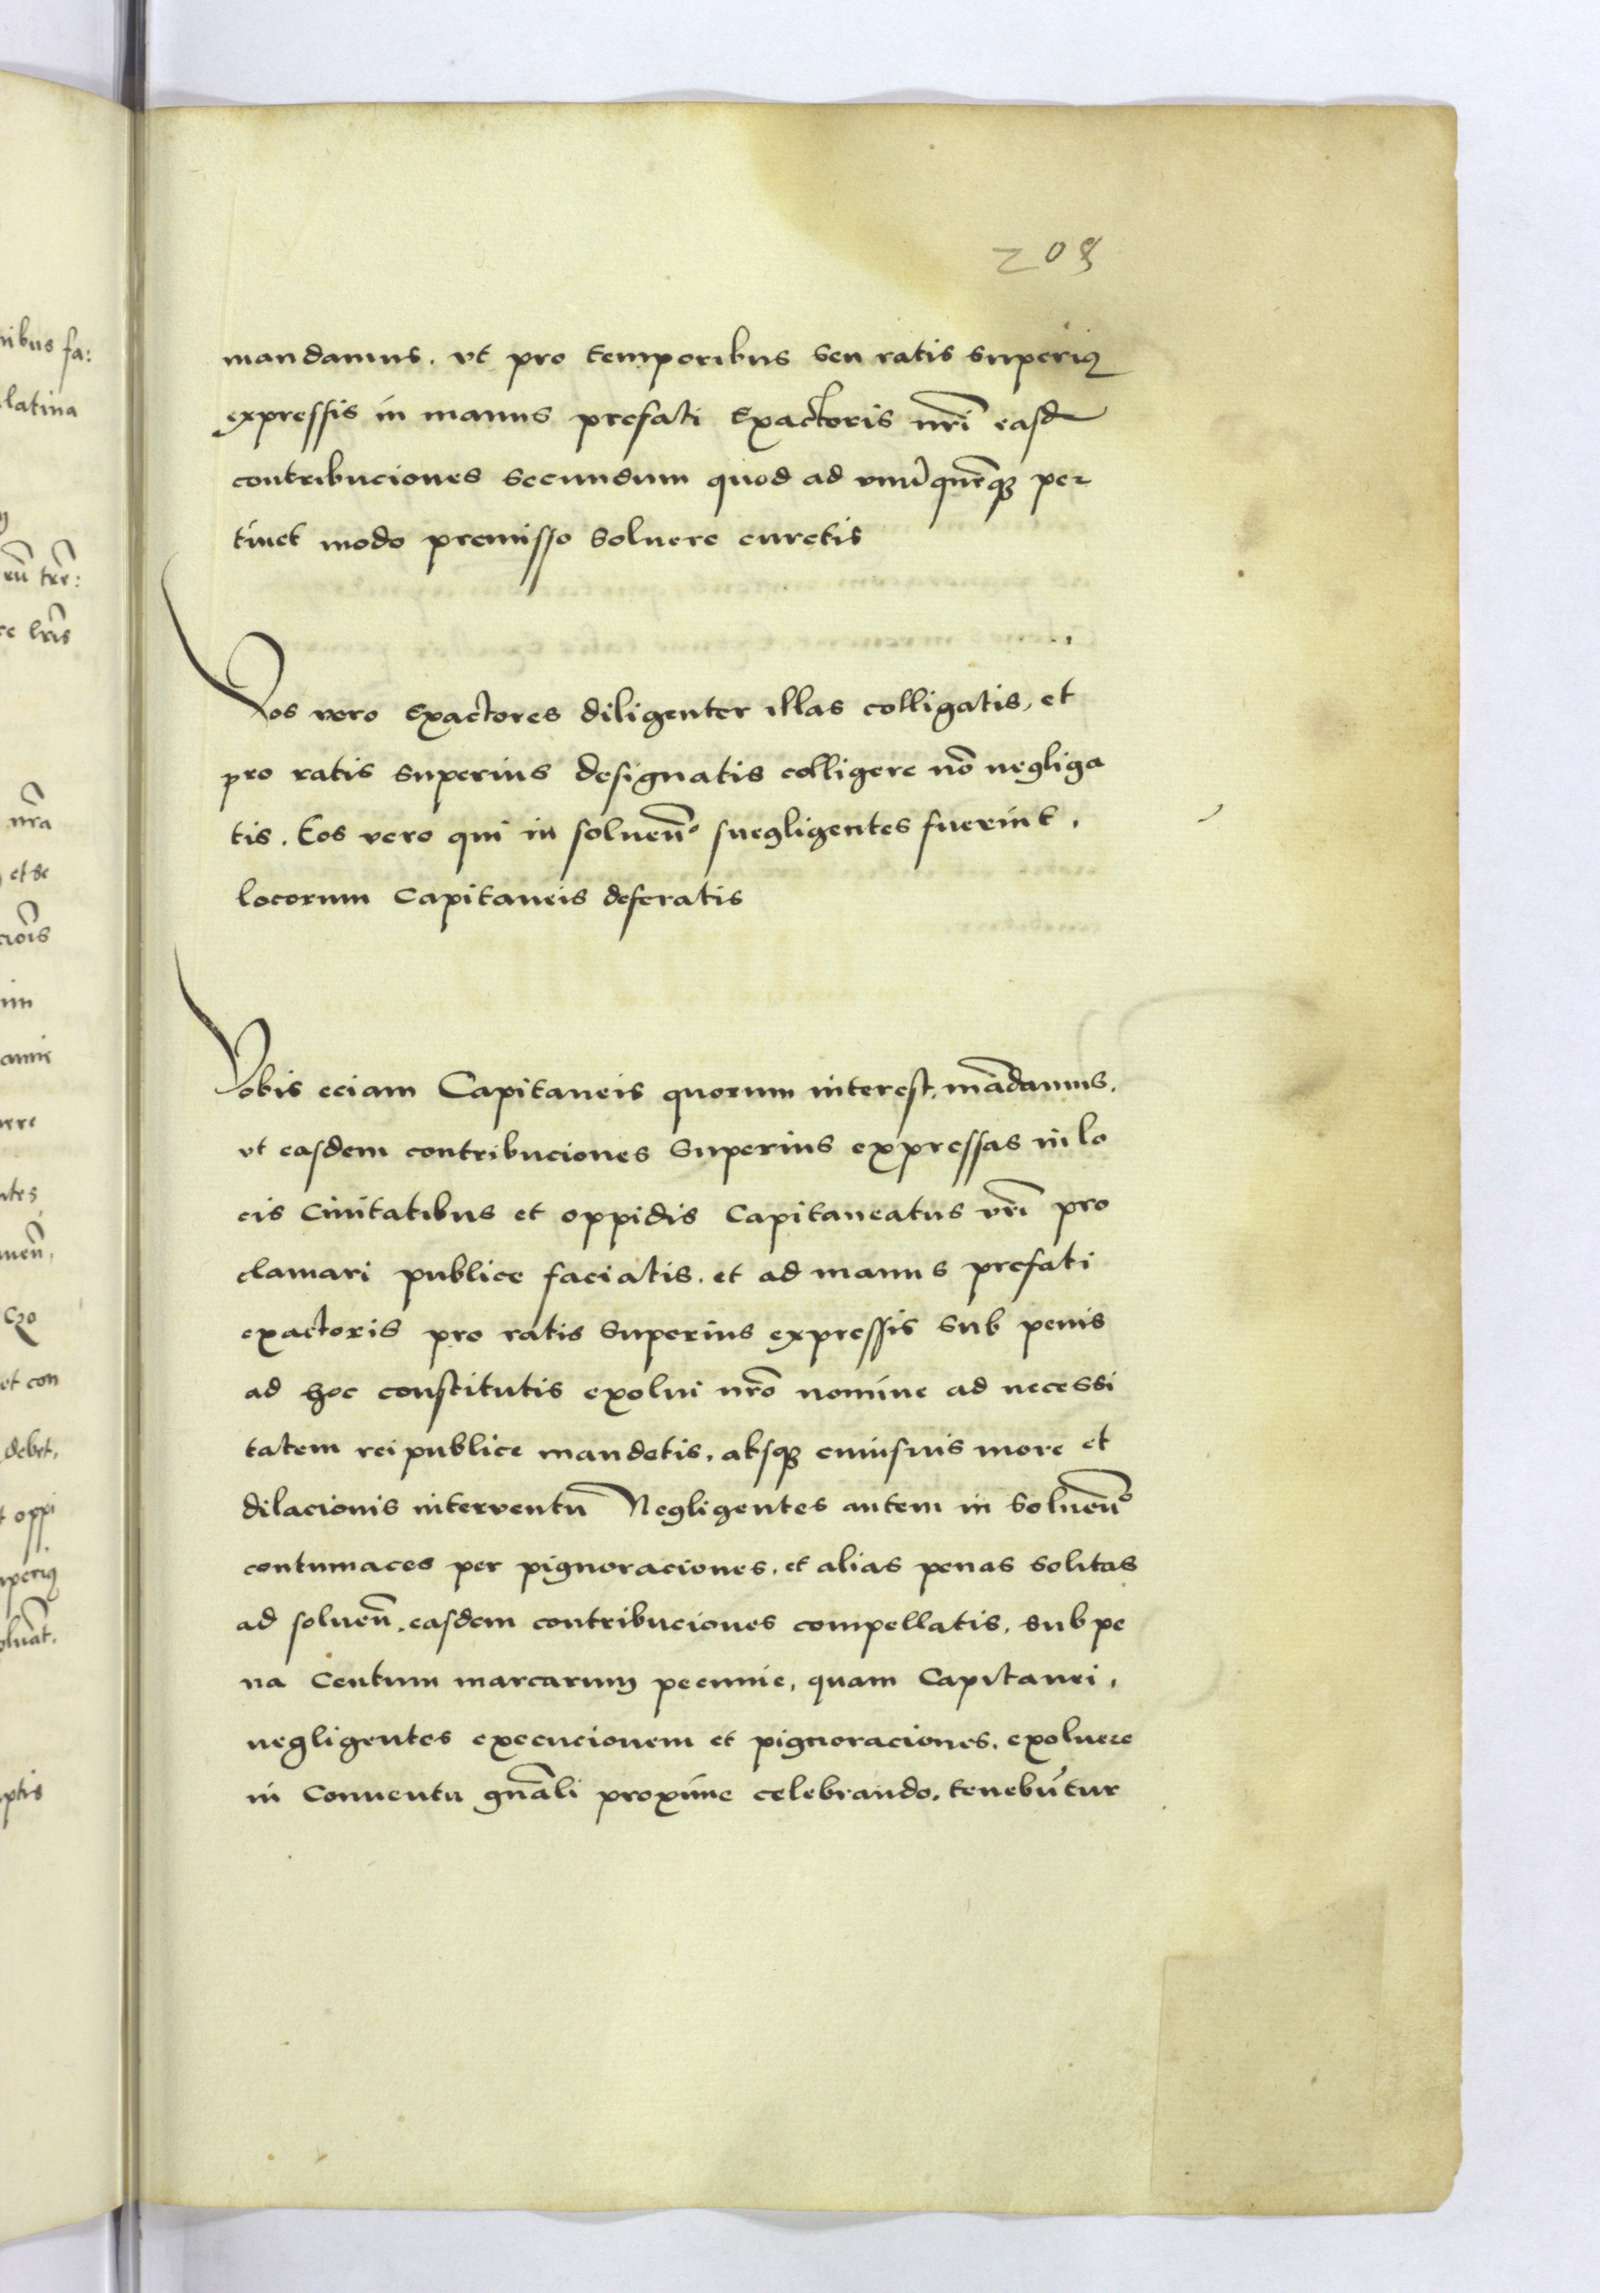 208
nibus fa:
latina
eū trr̄:
re lr̄is
nr̄a
et de
cioīs
nin
ntes
Czo
et con
debet.
t oppi
periꝰ
ptis
mandamus. vt pro temporibus seu ratis superiꝰ
expressis in manus prefati Exactoris nr̄i easd
contribuciones secundum quod ad vnū̄quēqꝫ per
tinet modo premisso soluere curetis
Vos vero Exactores diligenter illas colligatis, et
pro ratis superius designatis colligere nō negliga
tis. Eos vero qui in soluen̄o negligentes fuerint.
locorum Capitaneis deferatis
Vobis eciam Capitaneis quorum interest, mādamus.
vt easdem contribuciones superius expressas in lo
cis Ciuitatibus et oppidis Capitaneatus vr̄i pro
clamari publice faciatis. et ad manus prefati
exactoris pro ratis superius expressis sub penis
ad hoc constitutis exolui nr̄o nomine ad necessi
tatem rei publice mandetis. absqꝫ cuiusuis more et
dilacionis interuentu Negligentes autem in soluen̄o
contumaces per pignoraciones. et alias penas solitas
ad soluen̄. easdem contribuciones compellatis. sub pe
na Centum marcarum pecunie, quam Capitanei,
negligentes execucionem et pignoraciones. exoluere
in Conuentu gn̄ali proxime celebrando. tenebūtur